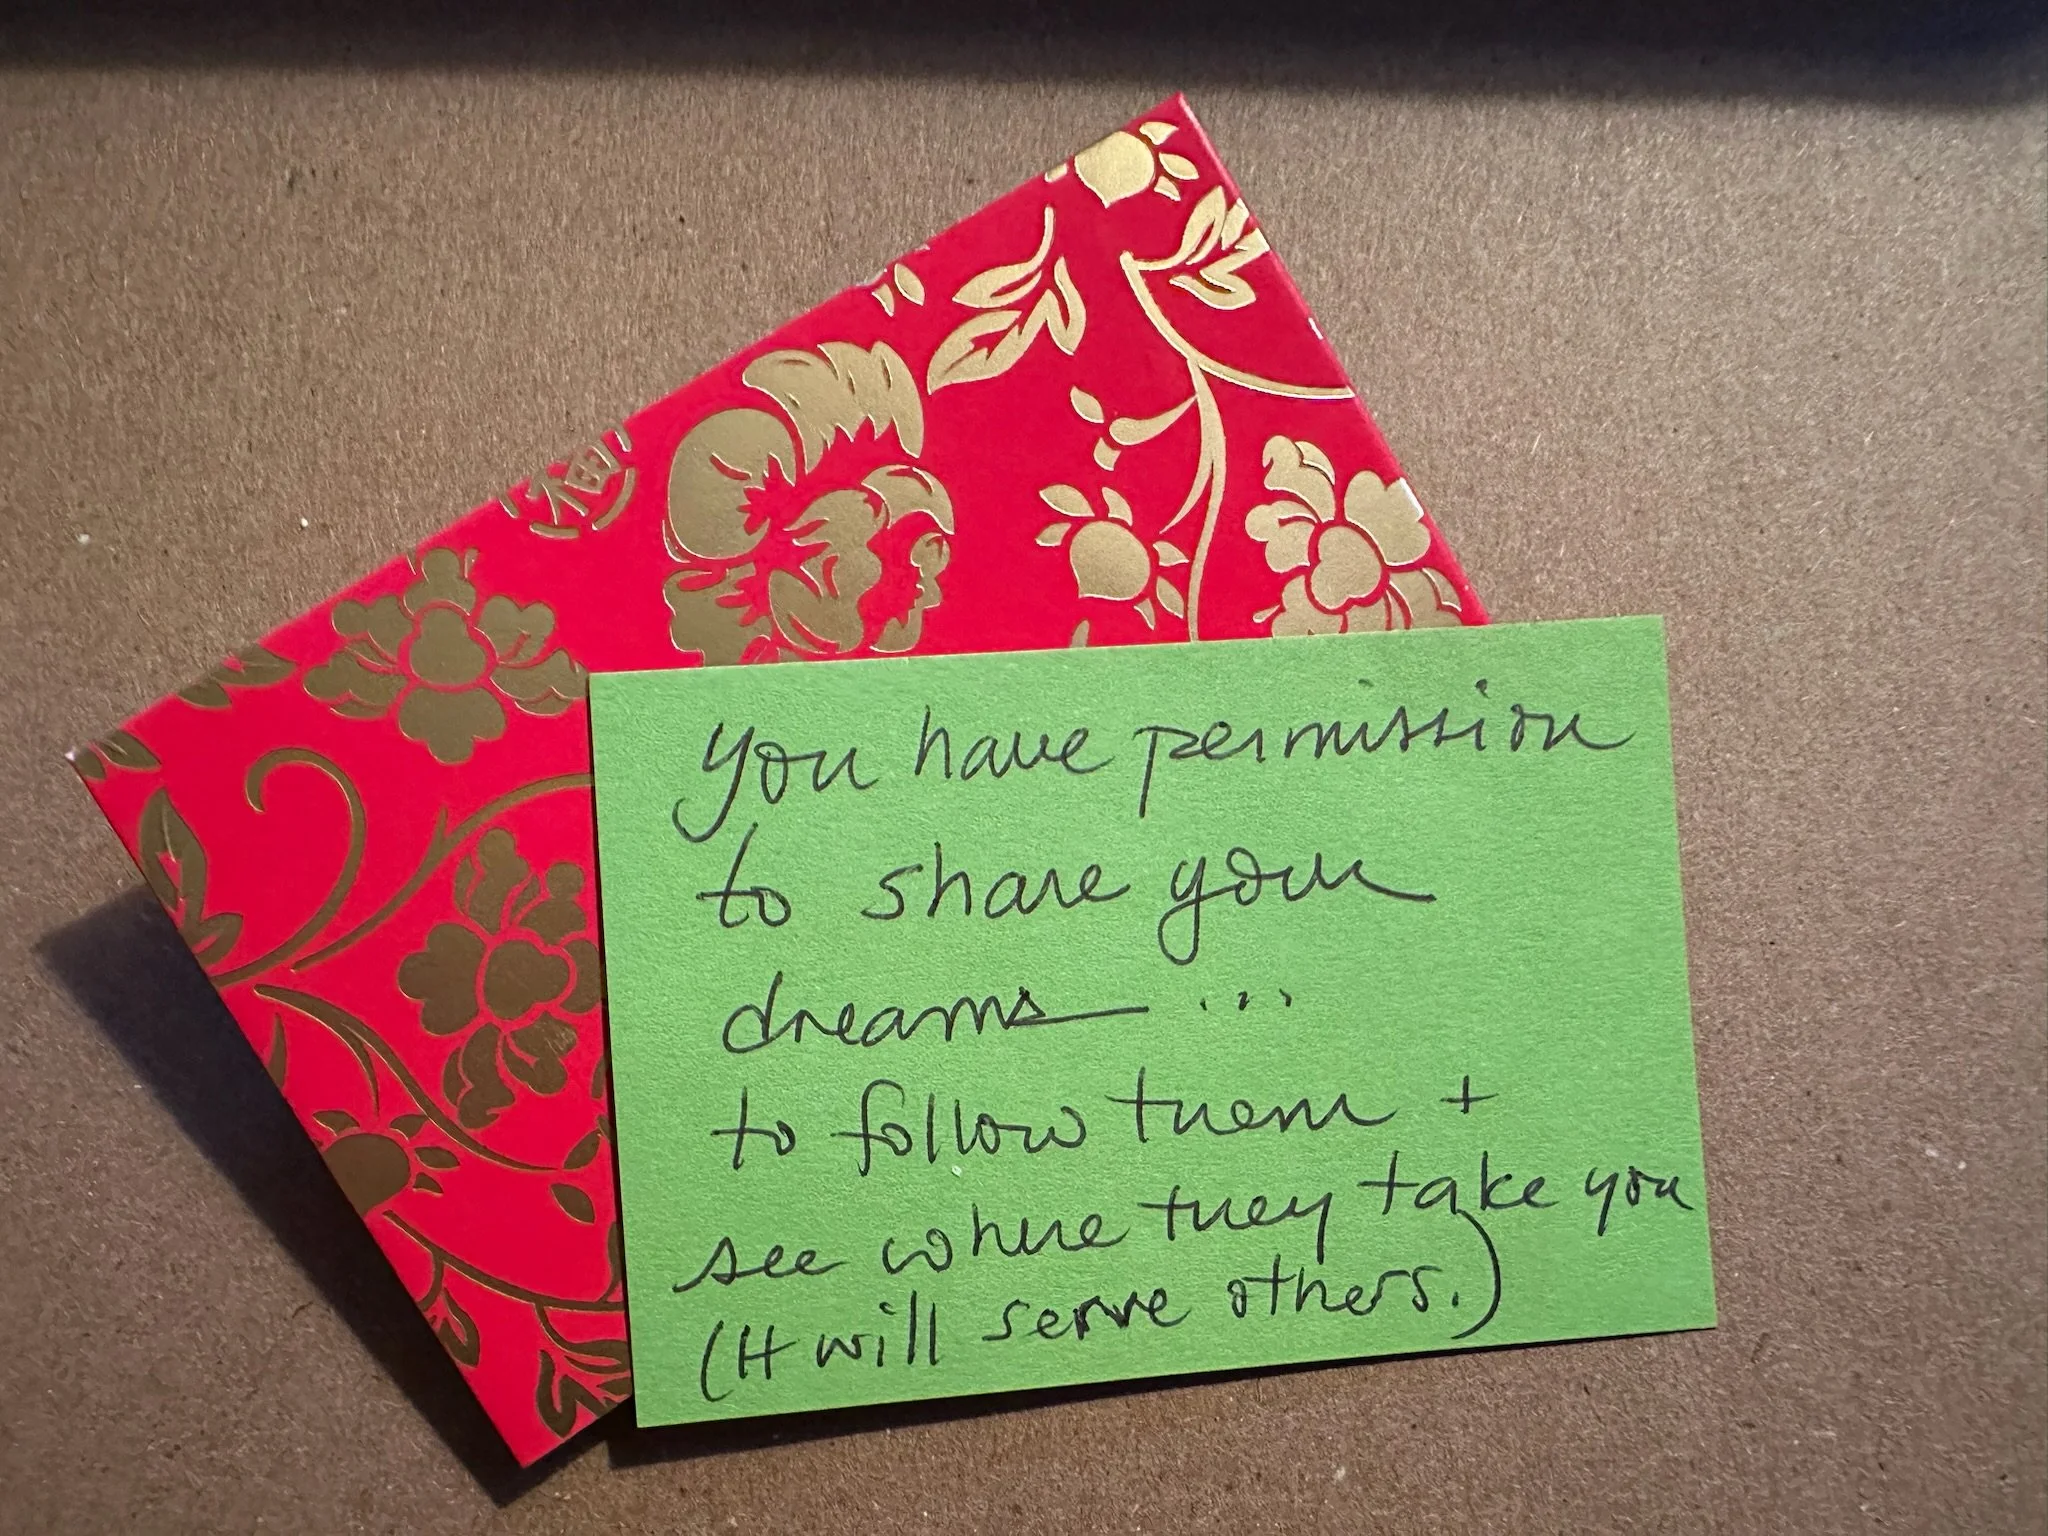 福
you have permission
to share your
dreams ...
to follow them +
see where they take you
(It will serve others.)